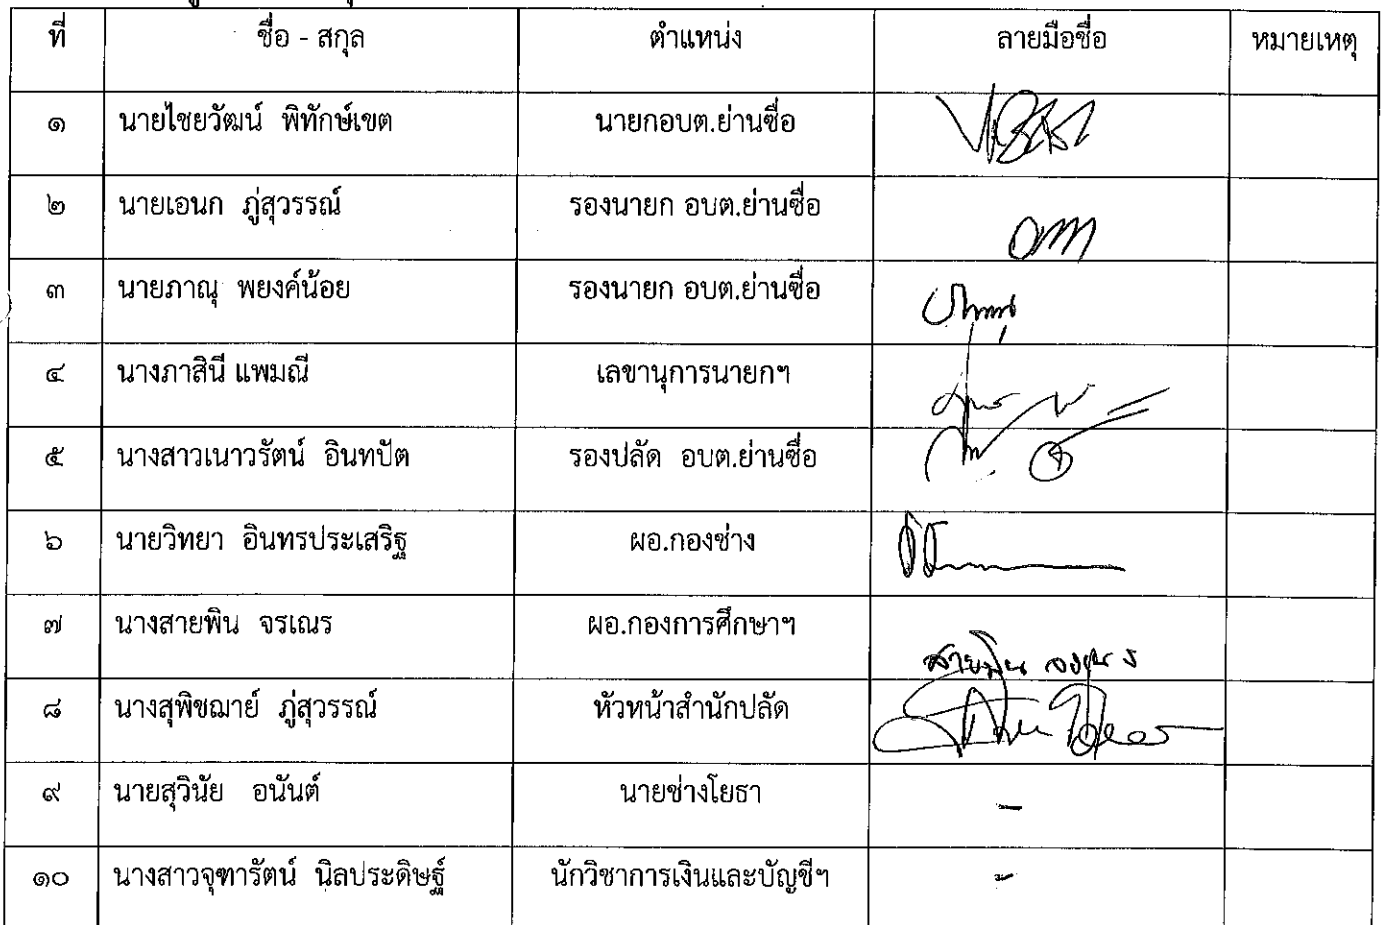 ที่ ชื่อ - สกุล ตำแหน่ง ลายมือชื่อ หมายเหตุ
๑ นายไชยวัฒน์ พิทักษ์เขต นายกอบต.ย่านซื่อ
๒ นายเอนก ภู่สุวรรณ์ รองนายก อบต.ย่านซื่อ
๓ นายภาณุ พยงค์น้อย รองนายก อบต.ย่านซื่อ
๔ นางภาสินี แพมณี เลขานุการนายกฯ
๕ นางสาวเนาวรัตน์ อินทปัต รองปลัด อบต.ย่านซื่อ
๖ นายวิทยา อินทรประเสริฐ ผอ.กองช่าง
๗ นางสายพิน จรเณร ผอ.กองการศึกษาฯ สายพิน จรเณร
๘ นางสุพิชฌาย์ ภู่สุวรรณ์ หัวหน้าสำนักปลัด
๙ นายสุวินัย อนันต์ นายช่างโยธา -
๑๐ นางสาวจุฑารัตน์ นิลประดิษฐ์ นักวิชาการเงินและบัญชีฯ -